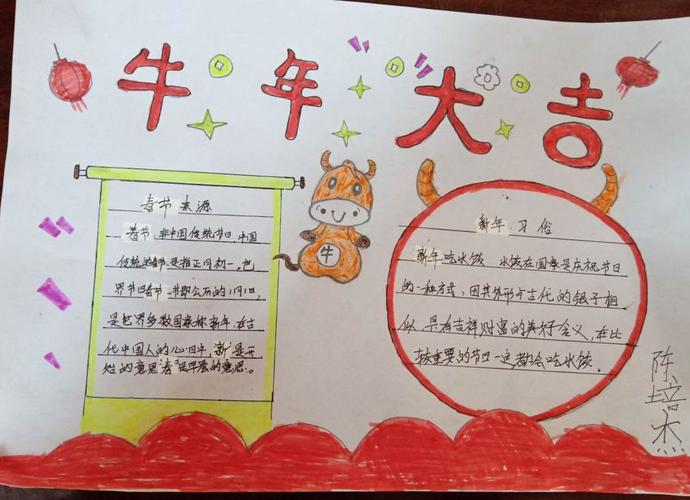 牛年大吉
春节来源
春节，非中国传统节日，中国
传统的春节是指正月初一。把
界节日春节一节即公历的1月1日，
是世界多数国家称新年，在古
代中国人的心目中，新是开
姓的意思，春是早晨的意思。
牛
新年习俗
新年吃水饺 水饺在国家是庆祝节日
的一种方式，因其外形与古代的银子相
似，具有吉祥财富的美好含义，在比
较重要的节日一定都会吃水饺。
陈培杰